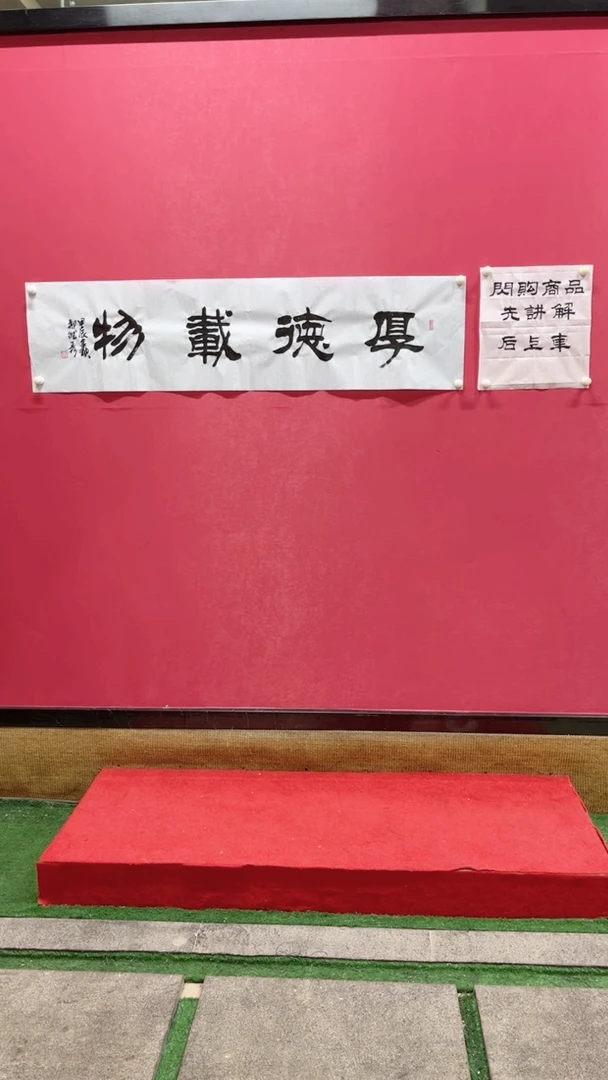 厚德載物
閃购商品
先講解
后上車